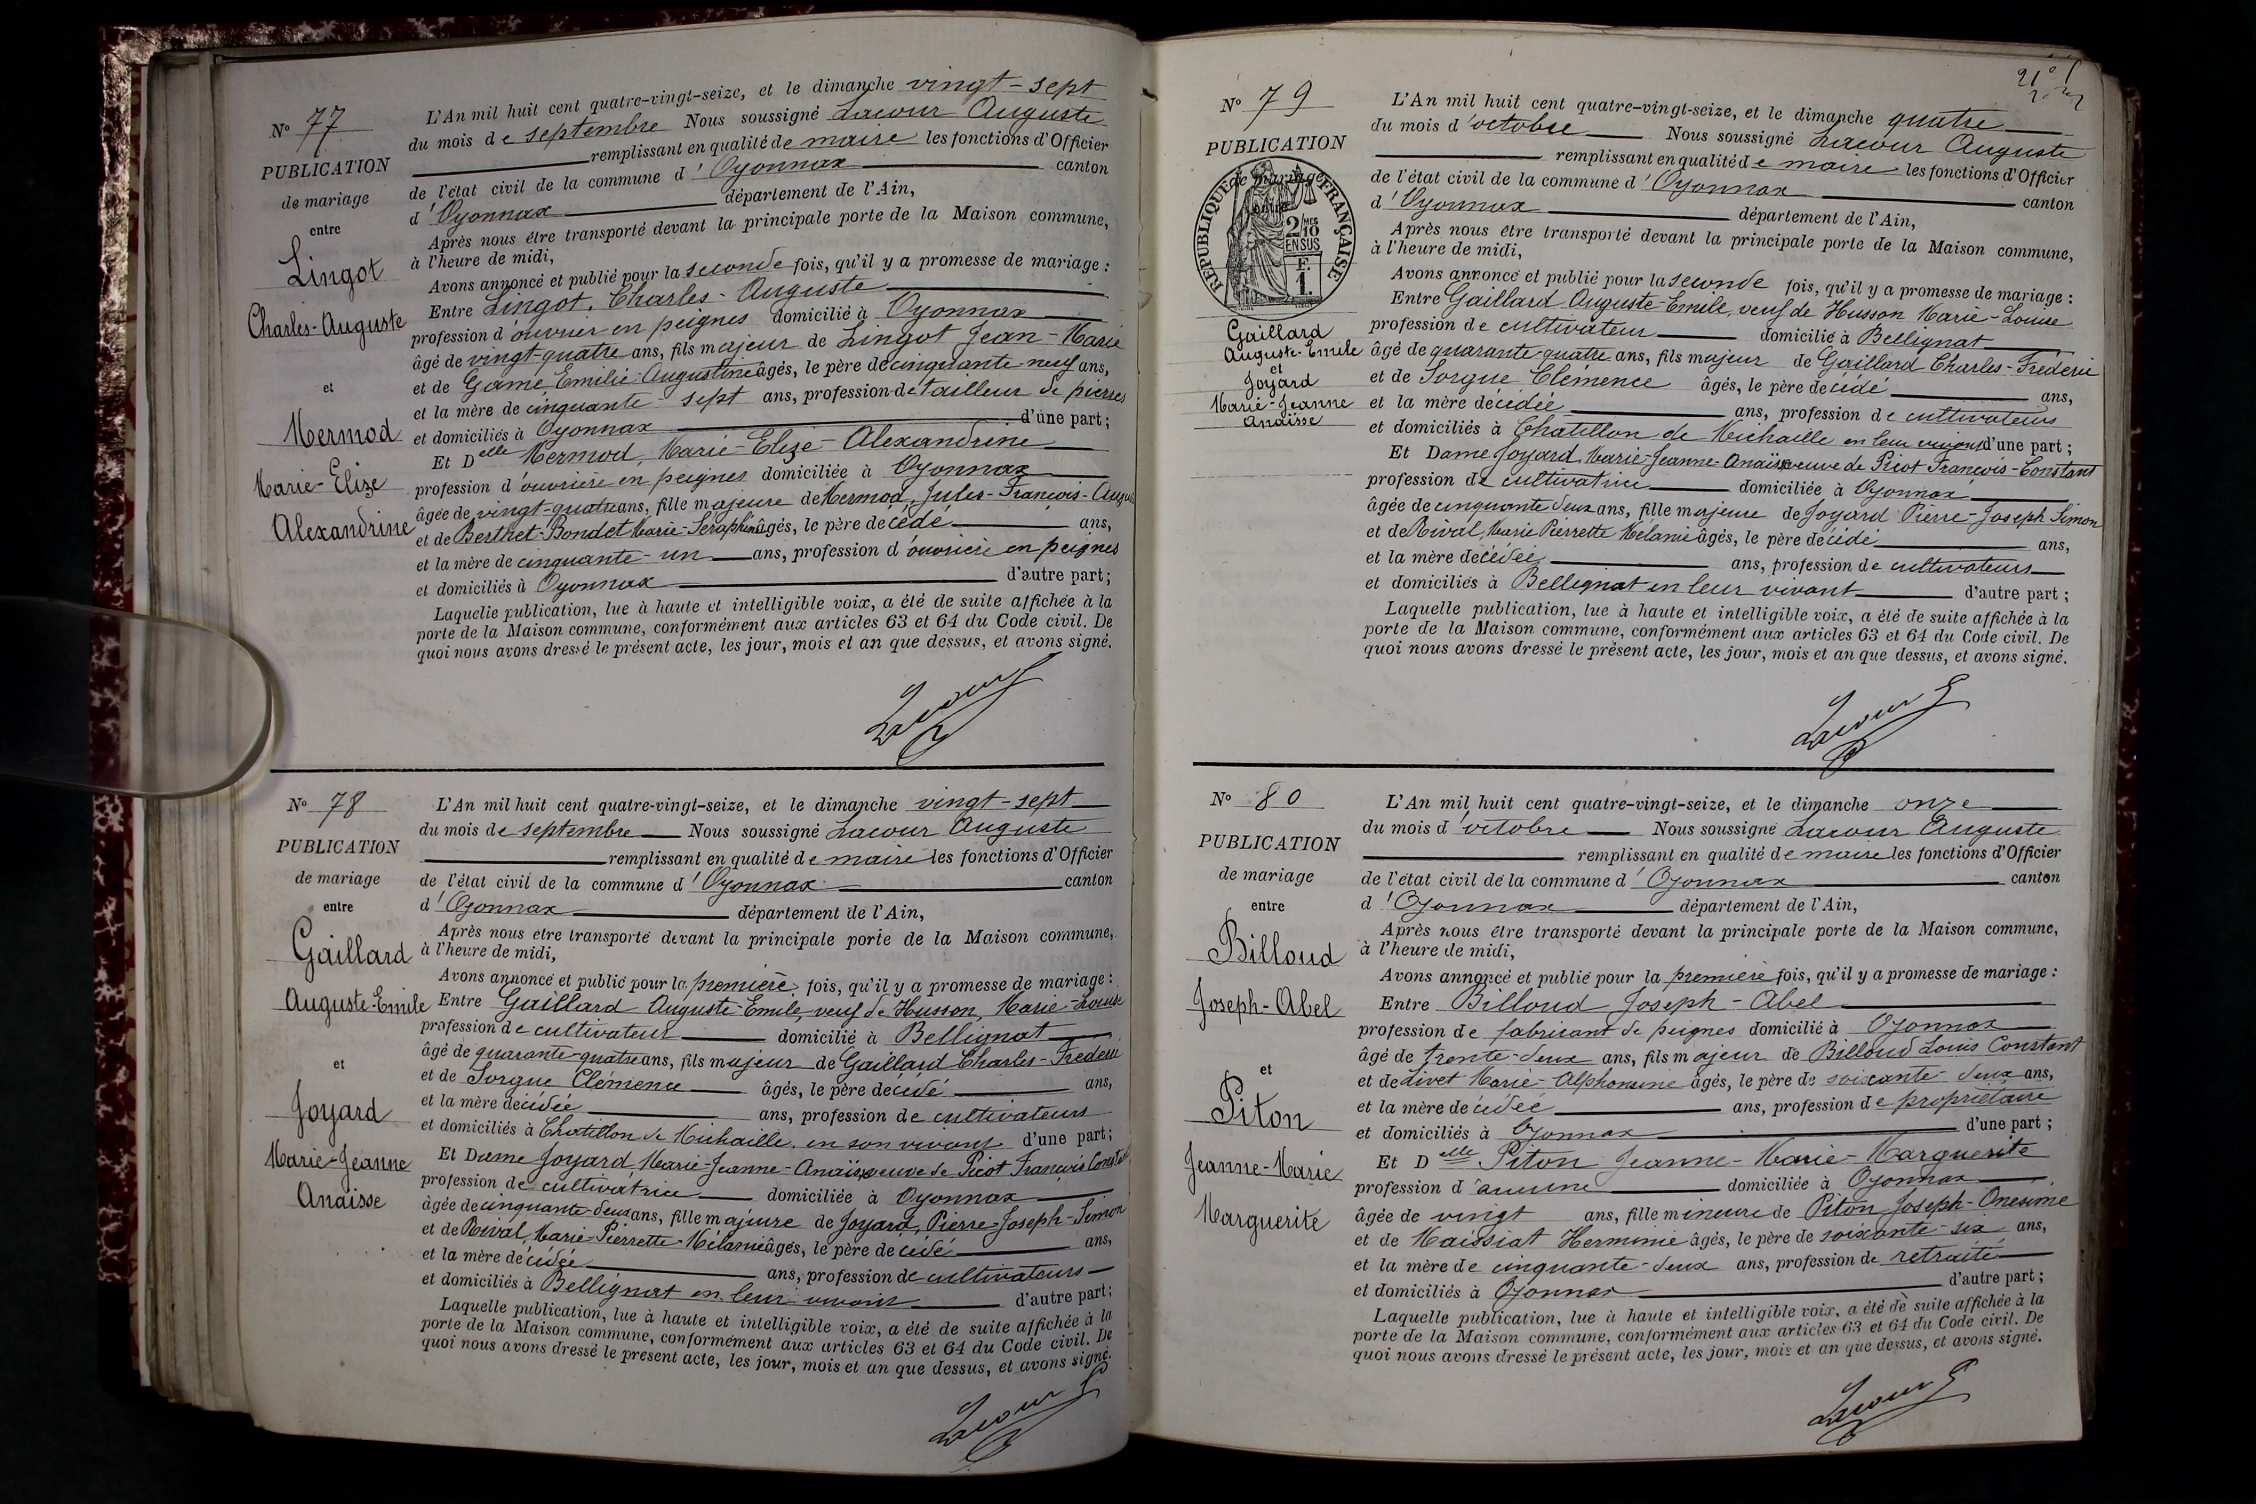 N° 77
PUBLICATION
de mariage
entre
Lingot
Charles-Auguste
et
Mermod
Marie-Elize
Alexandrine
L'An mil huit cent quatre-vingt-seize, et le dimanche vingt-sept
du mois de septembre Nous soussigné Lacour Auguste
remplissant en qualité de maire les fonctions d'Officier
de l'état civil de la commune d'Oyonnax canton
d'Oyonnax département de l'Ain,
Après nous être transporté devant la principale porte de la Maison commune,
à l'heure de midi,
Avons annoncé et publié pour la seconde fois, qu'il y a promesse de mariage :
Entre Lingot, Charles-Auguste
profession d'ouvrier en peignes domicilié à Oyonnax
âgé de vingt-quatre ans, fils majeur de Lingot Jean-Marie
et de Game Emilie-Augustine âgés, le père de cinquante neuf ans,
et la mère de cinquante-sept ans, profession de tailleur de pierres
et domiciliés à Oyonnax d'une part;
Et Delle Mermod, Marie-Elize-Alexandrine
profession d'ouvrière en peignes domiciliée à Oyonnax
âgée de vingt-quatre ans, fille majeure de Mermod, Jules-François-
et de Berthet-Bondet Marie-Séraphine âgés, le père décédé ans,
et la mère de cinquante-un ans, profession d'ouvrière en peignes
et domiciliés à Oyonnax d'autre part;
Laquelle publication, lue à haute et intelligible voix, a été de suite affichée à la
porte de la Maison commune, conformément aux articles 63 et 64 du Code civil. De
quoi nous avons dressé le présent acte, les jour, mois et an que dessus, et avons signé.
Lacour
N° 78
PUBLICATION
de mariage
entre
Gaillard
Auguste-Emile
et
Joyard
Marie-Jeanne
Anaïsse
L'An mil huit cent quatre-vingt-seize, et le dimanche vingt-sept
du mois de septembre Nous soussigné Lacour Auguste
remplissant en qualité de maire les fonctions d'Officier
de l'état civil de la commune d'Oyonnax canton
d'Oyonnax département de l'Ain,
Après nous être transporté devant la principale porte de la Maison commune,
à l'heure de midi,
Avons annoncé et publié pour la première fois, qu'il y a promesse de mariage :
Entre Gaillard Auguste-Emile, veuf de Husson, Marie-Louise
profession de cultivateur domicilié à Bellignat
âgé de quarante-quatre ans, fils majeur de Gaillard Charles-Frédéric
et de Sorgue Clémence âgés, le père décédé ans,
et la mère décédée ans, profession de cultivateurs
et domiciliés à Chatillon de Michaille en son vivant d'une part;
Et Dame Joyard Marie-Jeanne-Anaïsse veuve de Picot François Constant
profession de cultivatrice domiciliée à Oyonnax
âgée de cinquante deux ans, fille majeure de Joyard, Pierre-Joseph-Simon
et de Rival, Marie-Pierrette-Mélanie âgés, le père décédé ans,
et la mère décédée ans, profession de cultivateurs
et domiciliés à Bellignat en leur vivant d'autre part;
Laquelle publication, lue à haute et intelligible voix, a été de suite affichée à la
porte de la Maison commune, conformément aux articles 63 et 64 du Code civil. De
quoi nous avons dressé le présent acte, les jour, mois et an que dessus, et avons signé.
Lacour
N° 79
PUBLICATION
de mariage
entre
RÉPUBLIQUE FRANÇAISE
2/10 MES
EN SUS
F.
1.
Gaillard
Auguste-Emile
et
Joyard
Marie-Jeanne
Anaïsse
L'An mil huit cent quatre-vingt-seize, et le dimanche quatre
du mois d'octobre Nous soussigné Lacour Auguste
remplissant en qualité de maire les fonctions d'Officier
de l'état civil de la commune d'Oyonnax canton
d'Oyonnax département de l'Ain,
Après nous être transporté devant la principale porte de la Maison commune,
à l'heure de midi,
Avons annoncé et publié pour la seconde fois, qu'il y a promesse de mariage :
Entre Gaillard Auguste-Emile, veuf de Husson Marie-Louise
profession de cultivateur domicilié à Bellignat
âgé de quarante-quatre ans, fils majeur de Gaillard Charles-Frédéric
et de Sorgue Clémence âgés, le père décédé ans,
et la mère décédée ans, profession de cultivateurs
et domiciliés à Chatillon de Michaille en leur vivant d'une part;
Et Dame Joyard Marie-Jeanne-Anaïsse veuve de Picot François-Constant
profession de cultivatrice domiciliée à Oyonnax
âgée de cinquante deux ans, fille majeure de Joyard Pierre-Joseph Simon
et de Rival, Marie Pierrette Mélanie âgés, le père décédé ans,
et la mère décédée ans, profession de cultivateurs
et domiciliés à Bellignat en leur vivant d'autre part;
Laquelle publication, lue à haute et intelligible voix, a été de suite affichée à la
porte de la Maison commune, conformément aux articles 63 et 64 du Code civil. De
quoi nous avons dressé le présent acte, les jour, mois et an que dessus, et avons signé.
Lacour
N° 80
PUBLICATION
de mariage
entre
Billoud
Joseph-Abel
et
Piton
Jeanne-Marie
Marguerite
L'An mil huit cent quatre-vingt-seize, et le dimanche onze
du mois d'octobre Nous soussigné Lacour Auguste
remplissant en qualité de maire les fonctions d'Officier
de l'état civil de la commune d'Oyonnax canton
d'Oyonnax département de l'Ain,
Après nous être transporté devant la principale porte de la Maison commune,
à l'heure de midi,
Avons annoncé et publié pour la première fois, qu'il y a promesse de mariage :
Entre Billoud Joseph-Abel
profession de fabricant de peignes domicilié à Oyonnax
âgé de trente-deux ans, fils majeur de Billoud Louis Constant
et de Livet Marie-Alphonsine âgés, le père de soixante-deux ans,
et la mère décédée ans, profession de propriétaire
et domiciliés à Oyonnax d'une part;
Et Delle Piton Jeanne-Marie-Marguerite
profession d'aucune domiciliée à Oyonnax
âgée de vingt ans, fille mineure de Piton Joseph-Onésime
et de Maissiat Herminie âgés, le père de soixante-six ans,
et la mère de cinquante-deux ans, profession de retraité
et domiciliés à Oyonnax d'autre part;
Laquelle publication, lue à haute et intelligible voix, a été de suite affichée à la
porte de la Maison commune, conformément aux articles 63 et 64 du Code civil. De
quoi nous avons dressé le présent acte, les jour, mois et an que dessus, et avons signé.
Lacour